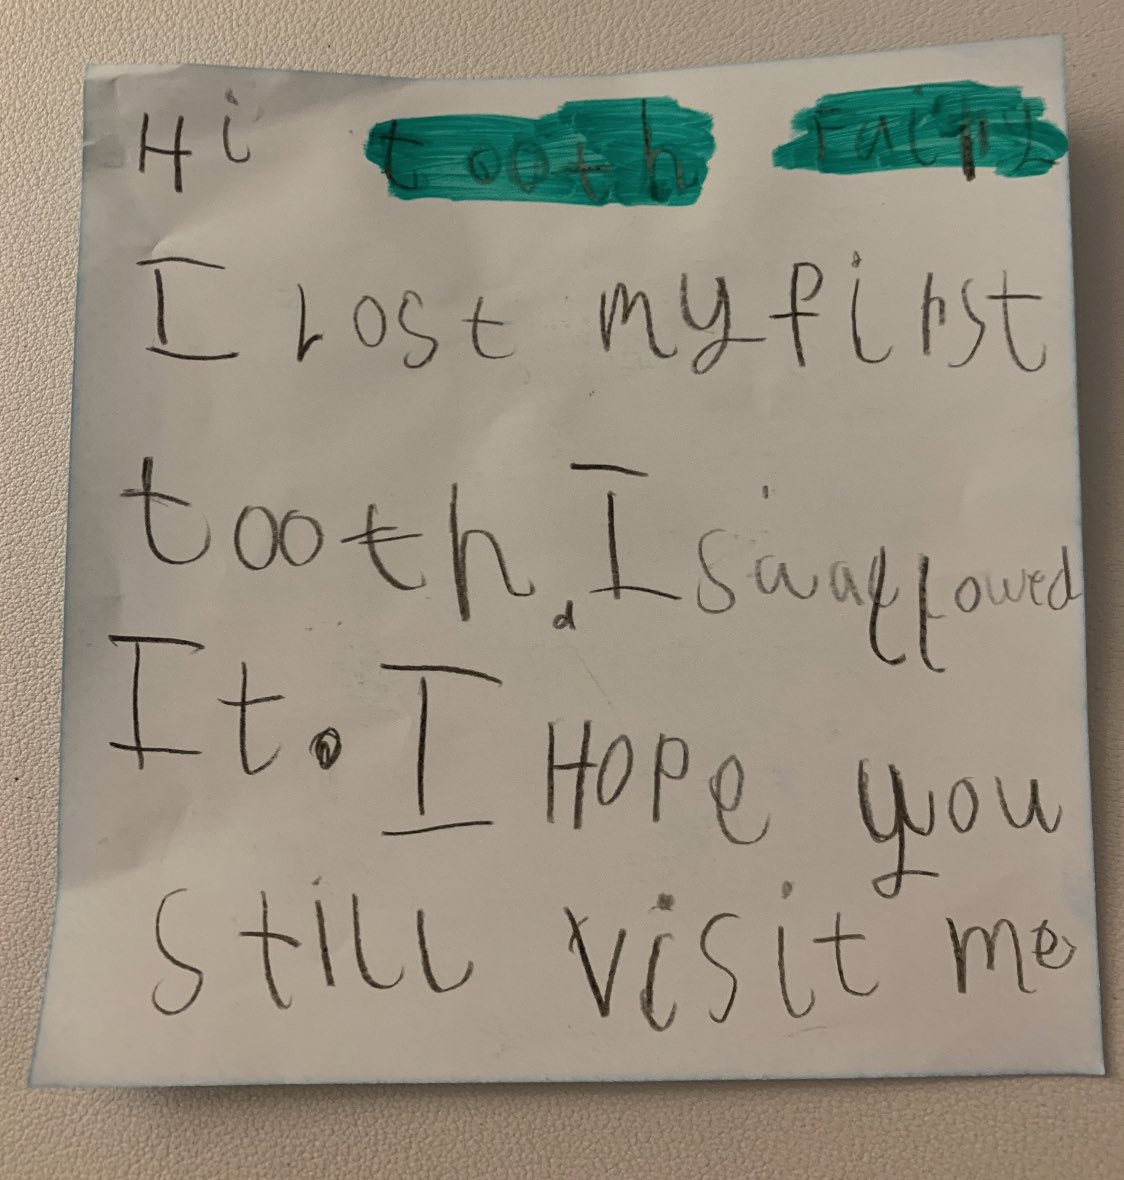 Hi tooth Fairy
I lost my first
tooth. I swallowed
It. I HOPe you
still visit me